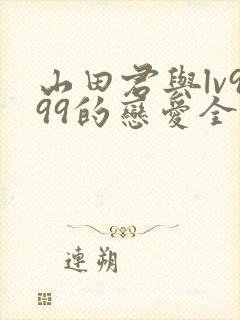 山田君與lv9
99的戀愛全
連朔